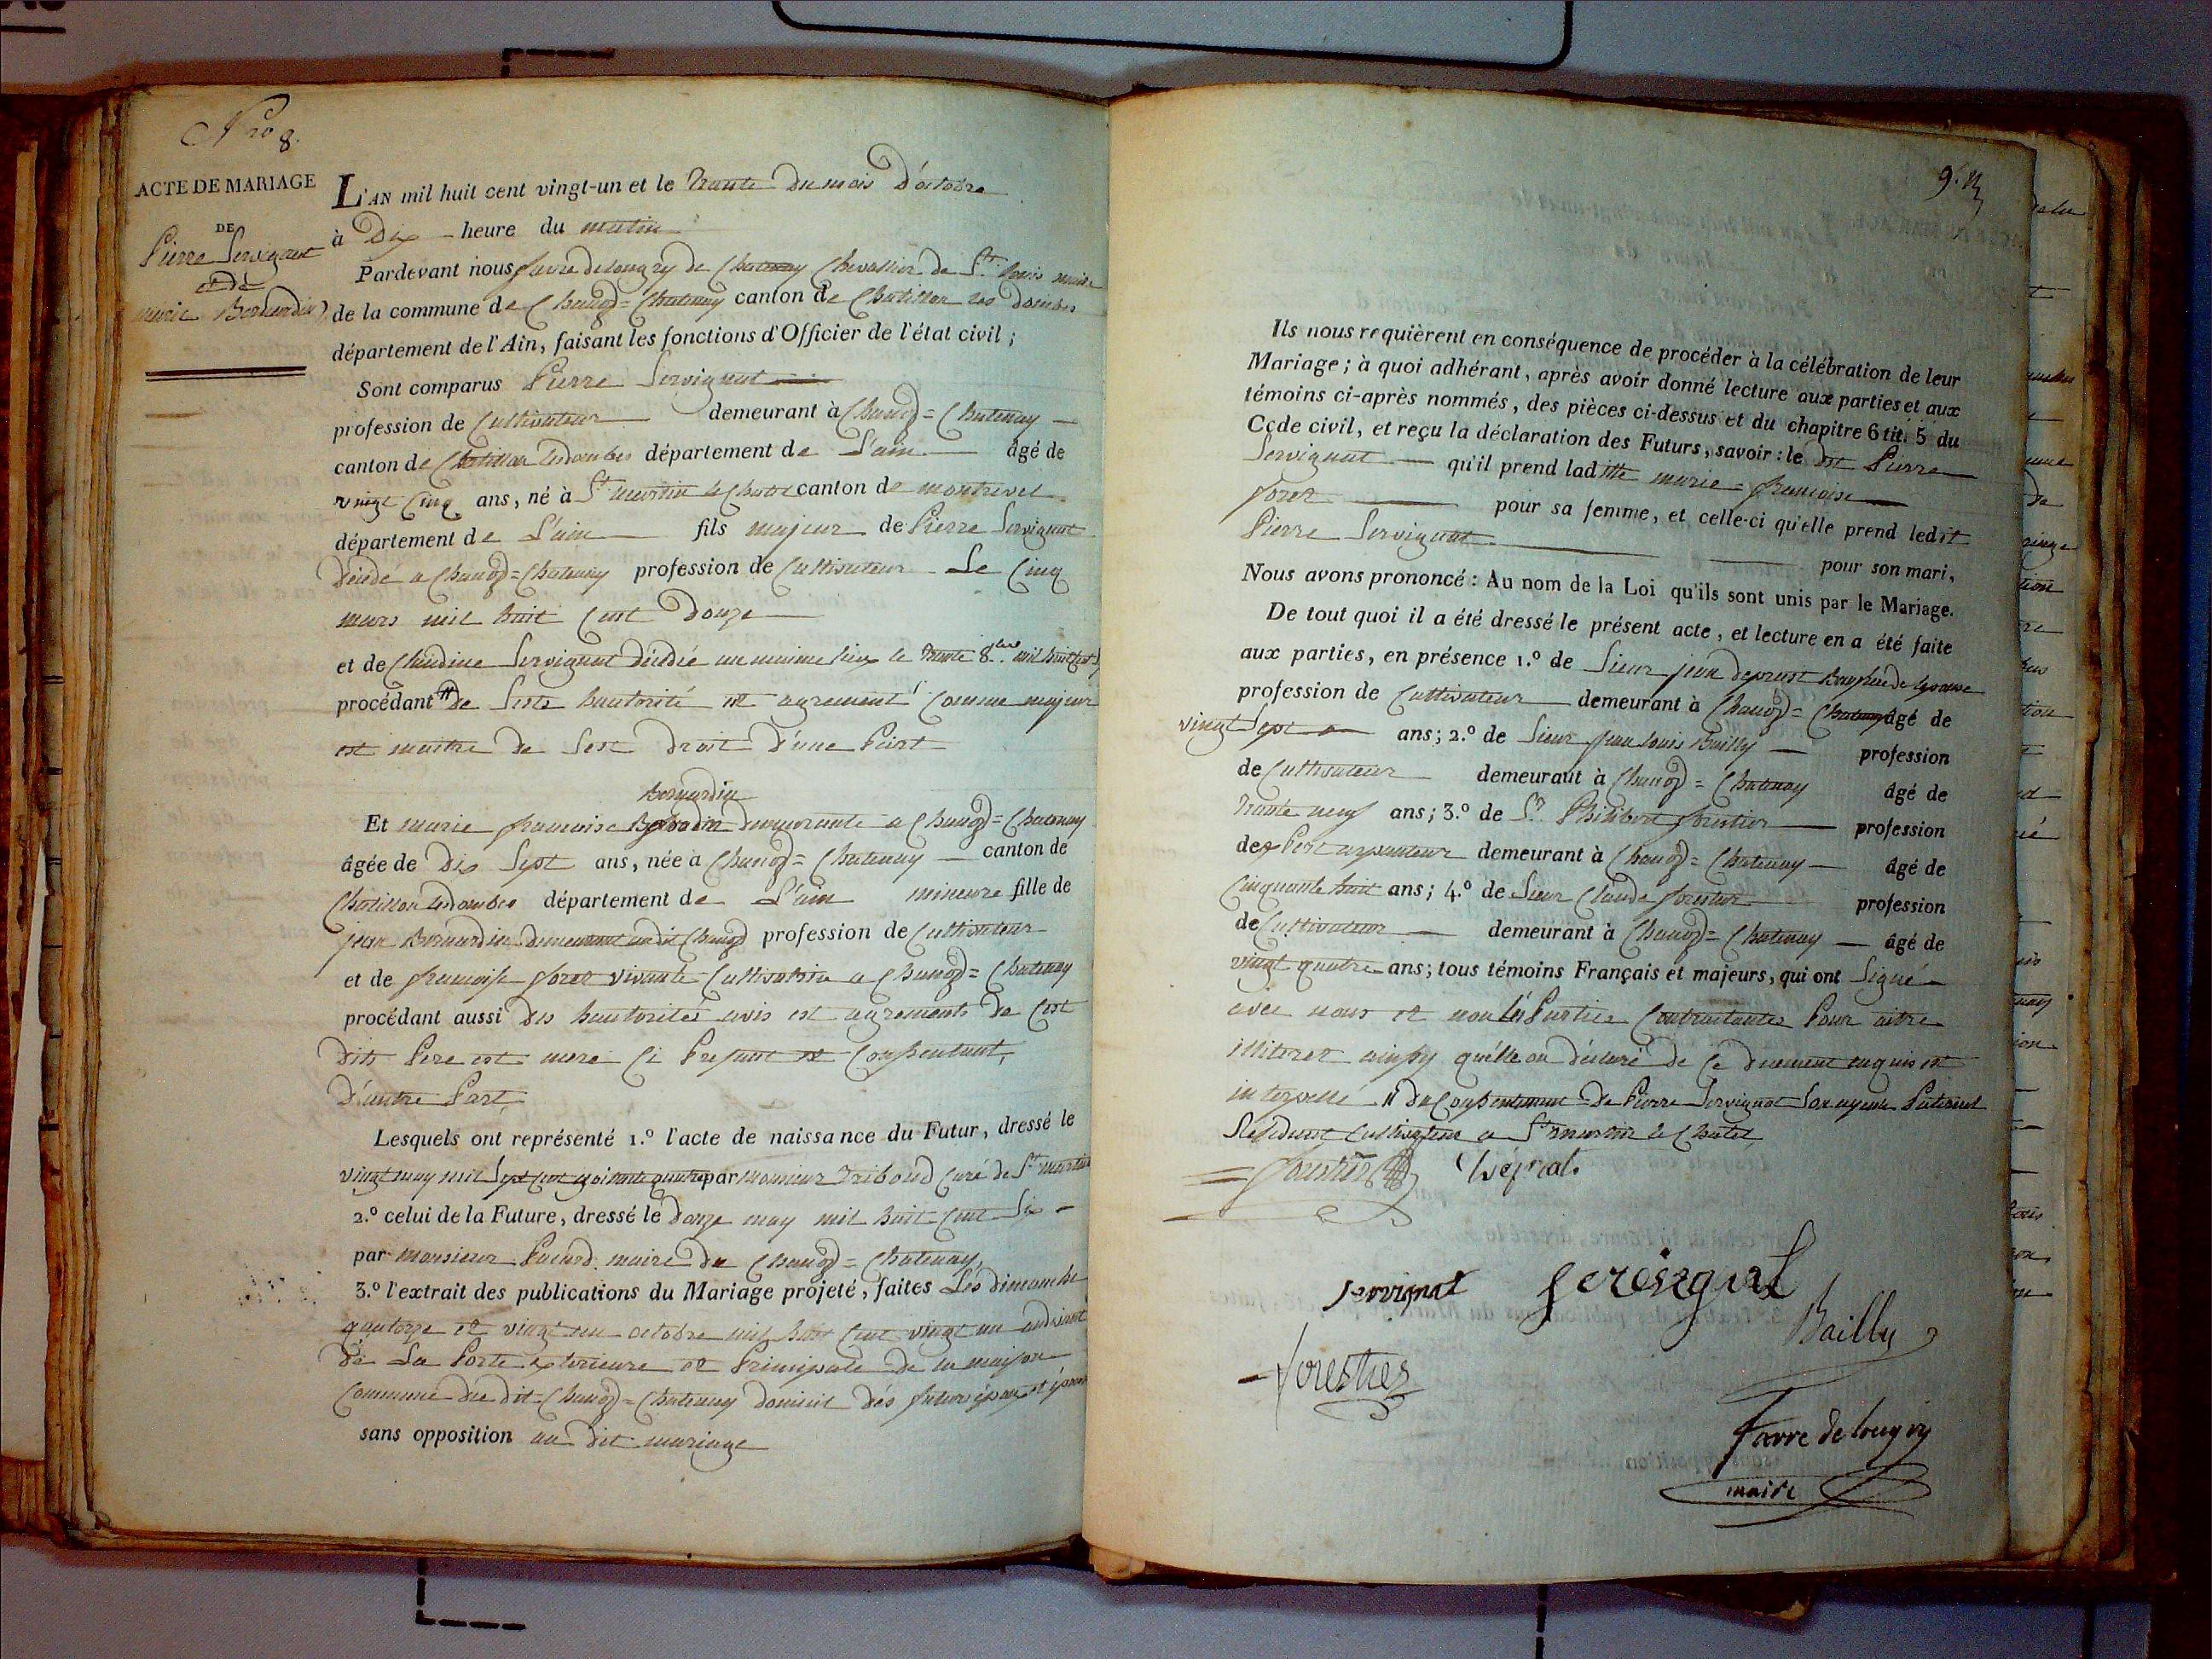 Nro 8.
ACTE DE MARIAGE
DE
Pierre Servignat
et de
marie Bernardin
L'AN mil huit cent vingt-un et le trante du mois d'octobre
à Dix heure du matin
Pardevant nous favre delongry de Chatenay Chevallier de St. Louis maire
de la commune de Chanoz=Chatenay canton de Chatillon les dombes
département de l'Ain, faisant les fonctions d'Officier de l'état civil ;
Sont comparus Pierre Servignat
profession de Cultivateur demeurant à Chanoz=Chatenay
canton de Chatillon lesdombes département de L'ain âgé de
vingt Cinq ans, né à St martin le Chatel canton de montrevel
département de L'ain fils majeur de Pierre Servignat
décédé a Chanoz=Chatenay profession de Cultivateur Le Cinq
mars mil huit Cent Douze
et de Claudine Servignat décédée au maime lieu le trante 8bre mil huit Cent
procédant " de Sest hautorité et agrement Comme majeur
est maitre de Sest Droit D'une Part
Bernardin
Et marie francoise demeurante a Chanoz=Chatenay
âgée de Dix Sept ans, née à Chanoz=Chatenay canton de
Chatillon lesdombes département de L'ain mineure fille de
jean Bernardin Demeurant audit Chanoz profession de Cultivateur
et de francoise foret vivante Cultivatrice a Chanoz=Chatenay
procédant aussi des hautorités avis est agrements de Cest
Dits Pere est mere Ci Presant et Consentant,
D'autre Part
Lesquels ont représenté 1.º l'acte de naissance du Futur, dressé le
vingt may mil Sept Cent par monsieur Triboud Curé de St martin
2.º celui de la Future, dressé le douze may mil huit Cent Six
par monsieur Pacard maire de Chanoz=Chatenay,
3.º l'extrait des publications du Mariage projeté, faites Lés dimanche
quatorze et vingt un octobre mil huit Cent vingt un audevant
de La Porte exterieure et Principale de la maison
Commune du dit Chanoz=Chatenay domicil dés futur époux et épouse
sans opposition au dit mariage
9.
Ils nous requièrent en conséquence de procéder à la célébration de leur
Mariage ; à quoi adhérant, après avoir donné lecture aux parties et aux
témoins ci-après nommés, des pièces ci-dessus et du chapitre 6 tit. 5 du
Code civil, et reçu la déclaration des Futurs, savoir : le dit Pierre
Servignat qu'il prend ladite marie=francoise
foret pour sa femme, et celle-ci qu'elle prend ledit
Pierre Servignat pour son mari,
Nous avons prononcé : Au nom de la Loi qu'ils sont unis par le Mariage.
De tout quoi il a été dressé le présent acte, et lecture en a été faite
aux parties, en présence 1.º de Sieur jean deprost
profession de Cultivateur demeurant à Chanoz=Chatenay âgé de
vingt Sept ans ; 2.º de Sieur Jean Louis Bailly profession
de Cultivateur demeurant à Chanoz=Chatenay âgé de
trante neuf ans ; 3.º de Sr. Philibert forestier profession
dexPert arpanteur demeurant à Chanoz=Chatenay âgé de
Cinquante huit ans ; 4.º de Sieur Claude forestier profession
de Cultivateur demeurant à Chanoz=Chatenay âgé de
vingt quatre ans ; tous témoins Français et majeurs, qui ont Signé
avec nous et non lés Parties Contractantes Pour aitre
illiteret ainsy quélle on déclaré de Ce duement enquis et
interpellé " du Consentement de Pierre Servignat Son ayeul Paternel
Résidant Cultivateur a St martin le Chatel
forestier
servignat
Servignat
Bailly
forestier
favre de longry
maire